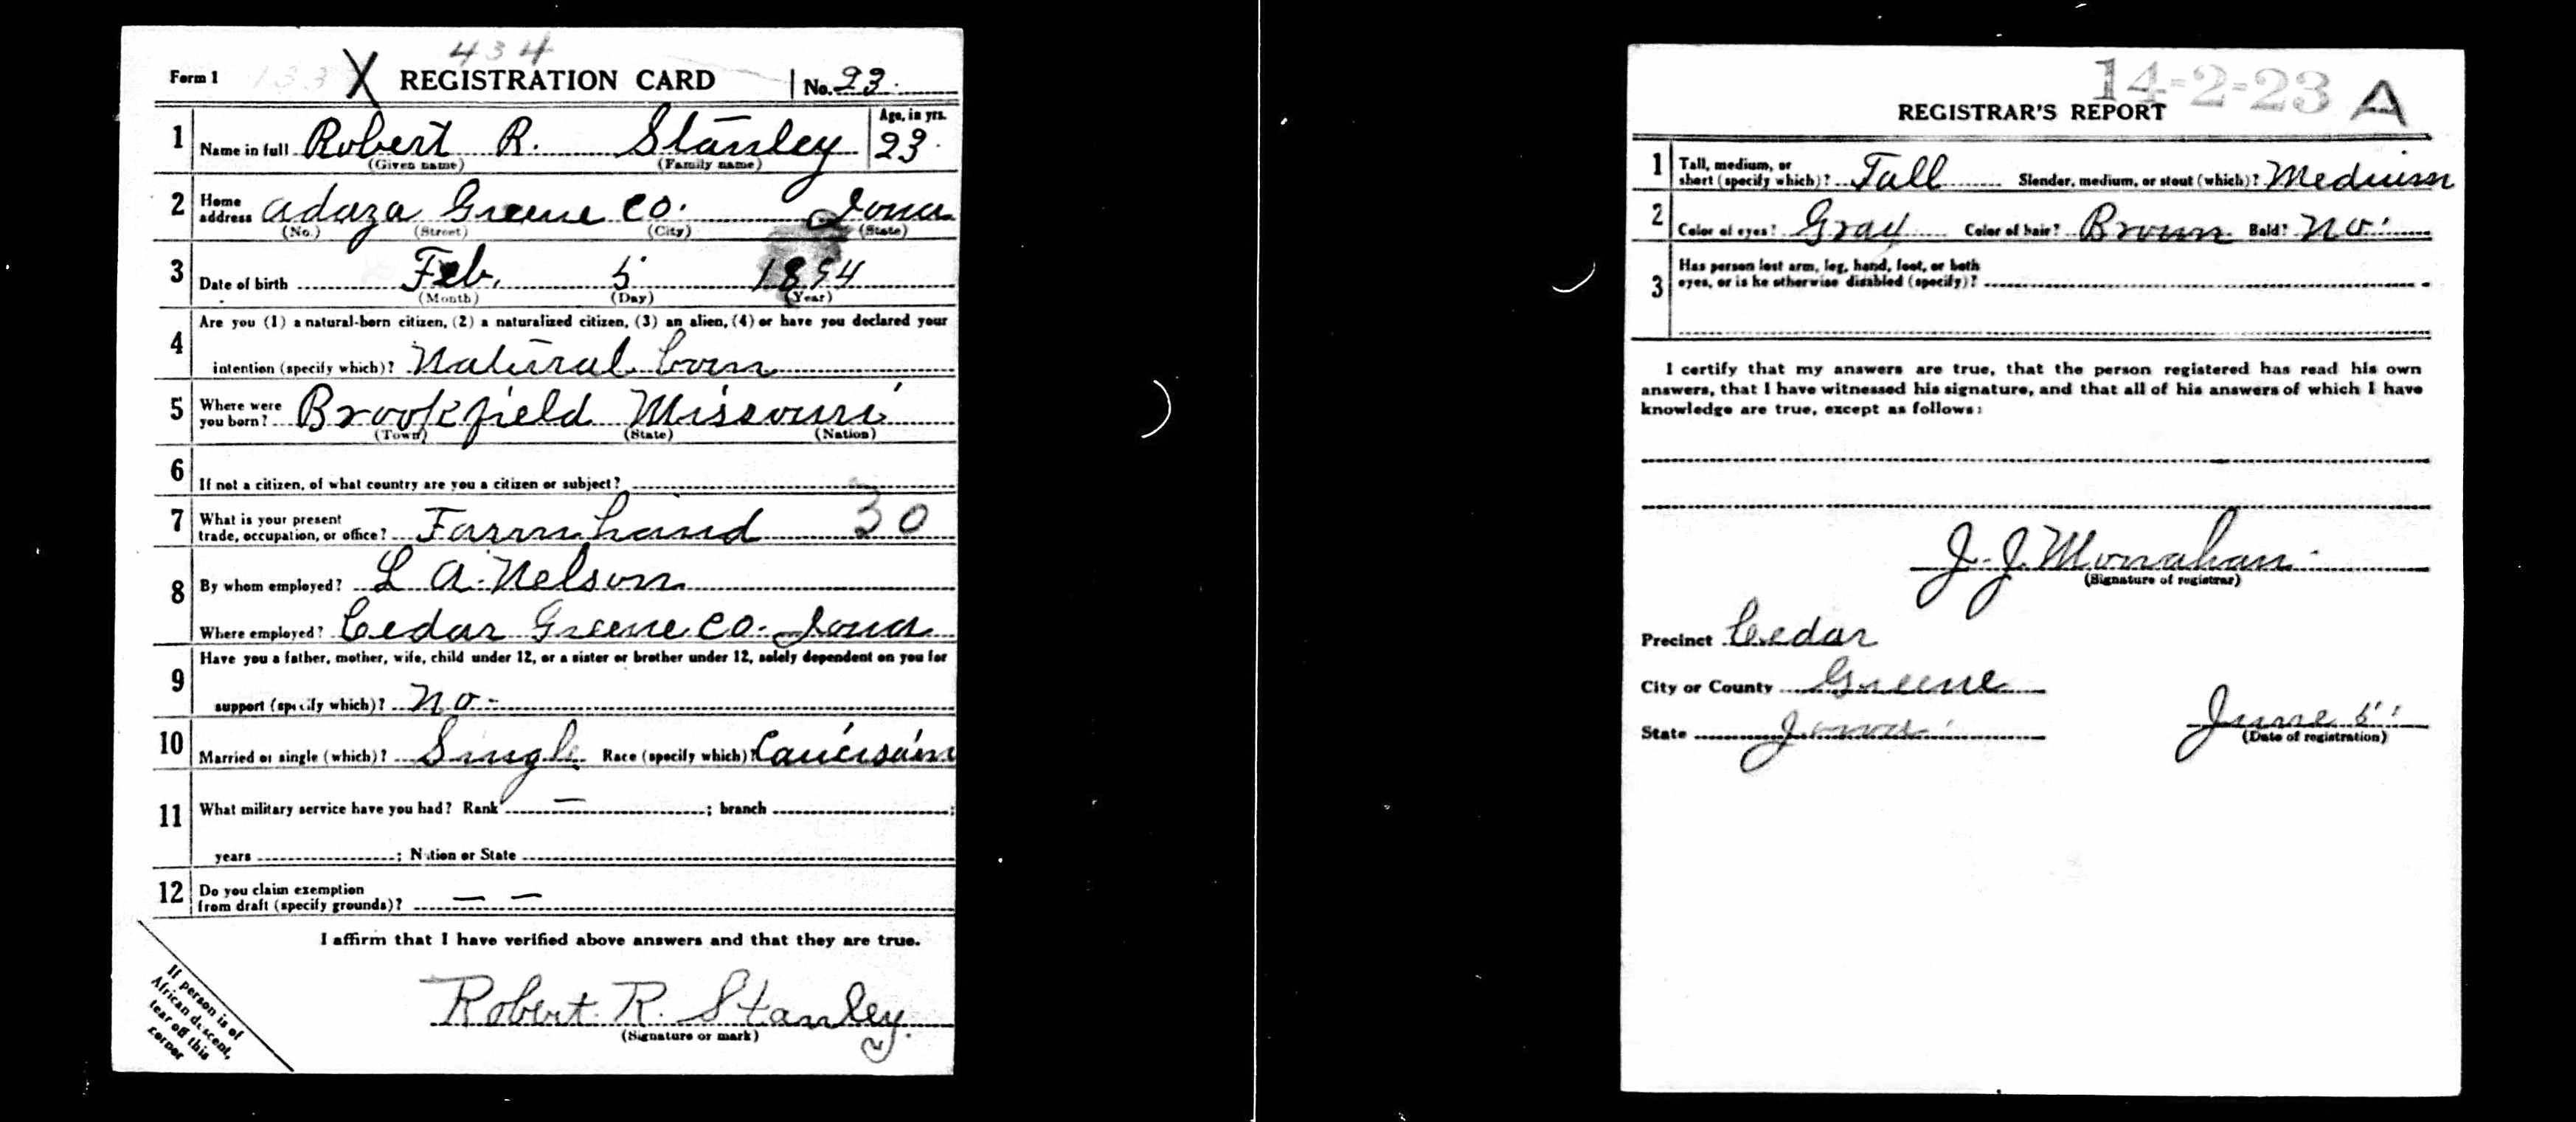 434
Form 1 133 X REGISTRATION CARD No. 23.
Age, in yrs.
1 Name in full Robert R. Stanley 23.
(Given name) (Family name)
2 Home address Adaza Greene Co. Iowa
(No.) (Street) (City) (State)
3 Date of birth Feb. 5 1894
(Month) (Day) (Year)
4 Are you (1) a natural-born citizen, (2) a naturalized citizen, (3) an alien, (4) or have you declared your
intention (specify which)? Natural born
5 Where were you born? Brookfield Missouri
(Town) (State) (Nation)
6 If not a citizen, of what country are you a citizen or subject?
7 What is your present trade, occupation, or office? Farm hand 30
8 By whom employed? L A. Nelson
Where employed? Cedar Greene Co. Iowa
9 Have you a father, mother, wife, child under 12, or a sister or brother under 12, solely dependent on you for
support (specify which)? No -
10 Married or single (which)? Single Race (specify which)? Caucisain
11 What military service have you had? Rank — ; branch ;
years ; Nation or State
12 Do you claim exemption
from draft (specify grounds)? — —
I affirm that I have verified above answers and that they are true.
Robert. R. Stanley.
(Signature or mark)
If person is of
African descent,
tear off this
corner
14-2-23 A
REGISTRAR'S REPORT
1 Tall, medium, or short (specify which)? Tall Slender, medium, or stout (which)? Medium
2 Color of eyes? Gray Color of hair? Brown Bald? No.
3 Has person lost arm, leg, hand, foot, or both
eyes, or is he otherwise disabled (specify)?
I certify that my answers are true, that the person registered has read his own
answers, that I have witnessed his signature, and that all of his answers of which I have
knowledge are true, except as follows:
J. J. Monahan.
(Signature of registrar)
Precinct Cedar
City or County Greene
State Iowa June 5
(Date of registration)